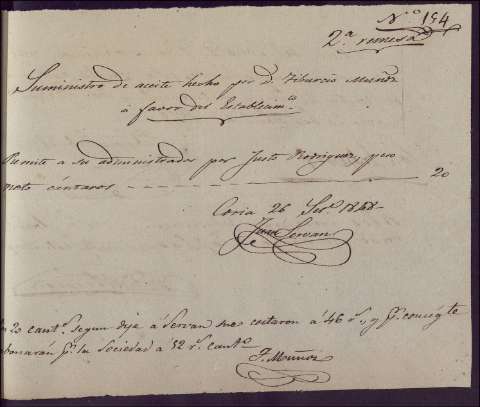 N.º 154
2.ª remesa
Suministro de aceite hecho por D. Tiburcio Muñoz
a favor del Establecim.to
Remite a su administrador por Justo Rodriguez, peso
neto cántaros 20
Coria 26 Set.e 1848-
Juan Servan
20 cant.s segun dije á Servan me costaron á 46 r.s, y p.r consig.te
abonarán p.r la Sociedad á 52 r.s cant.o
T. Muñoz